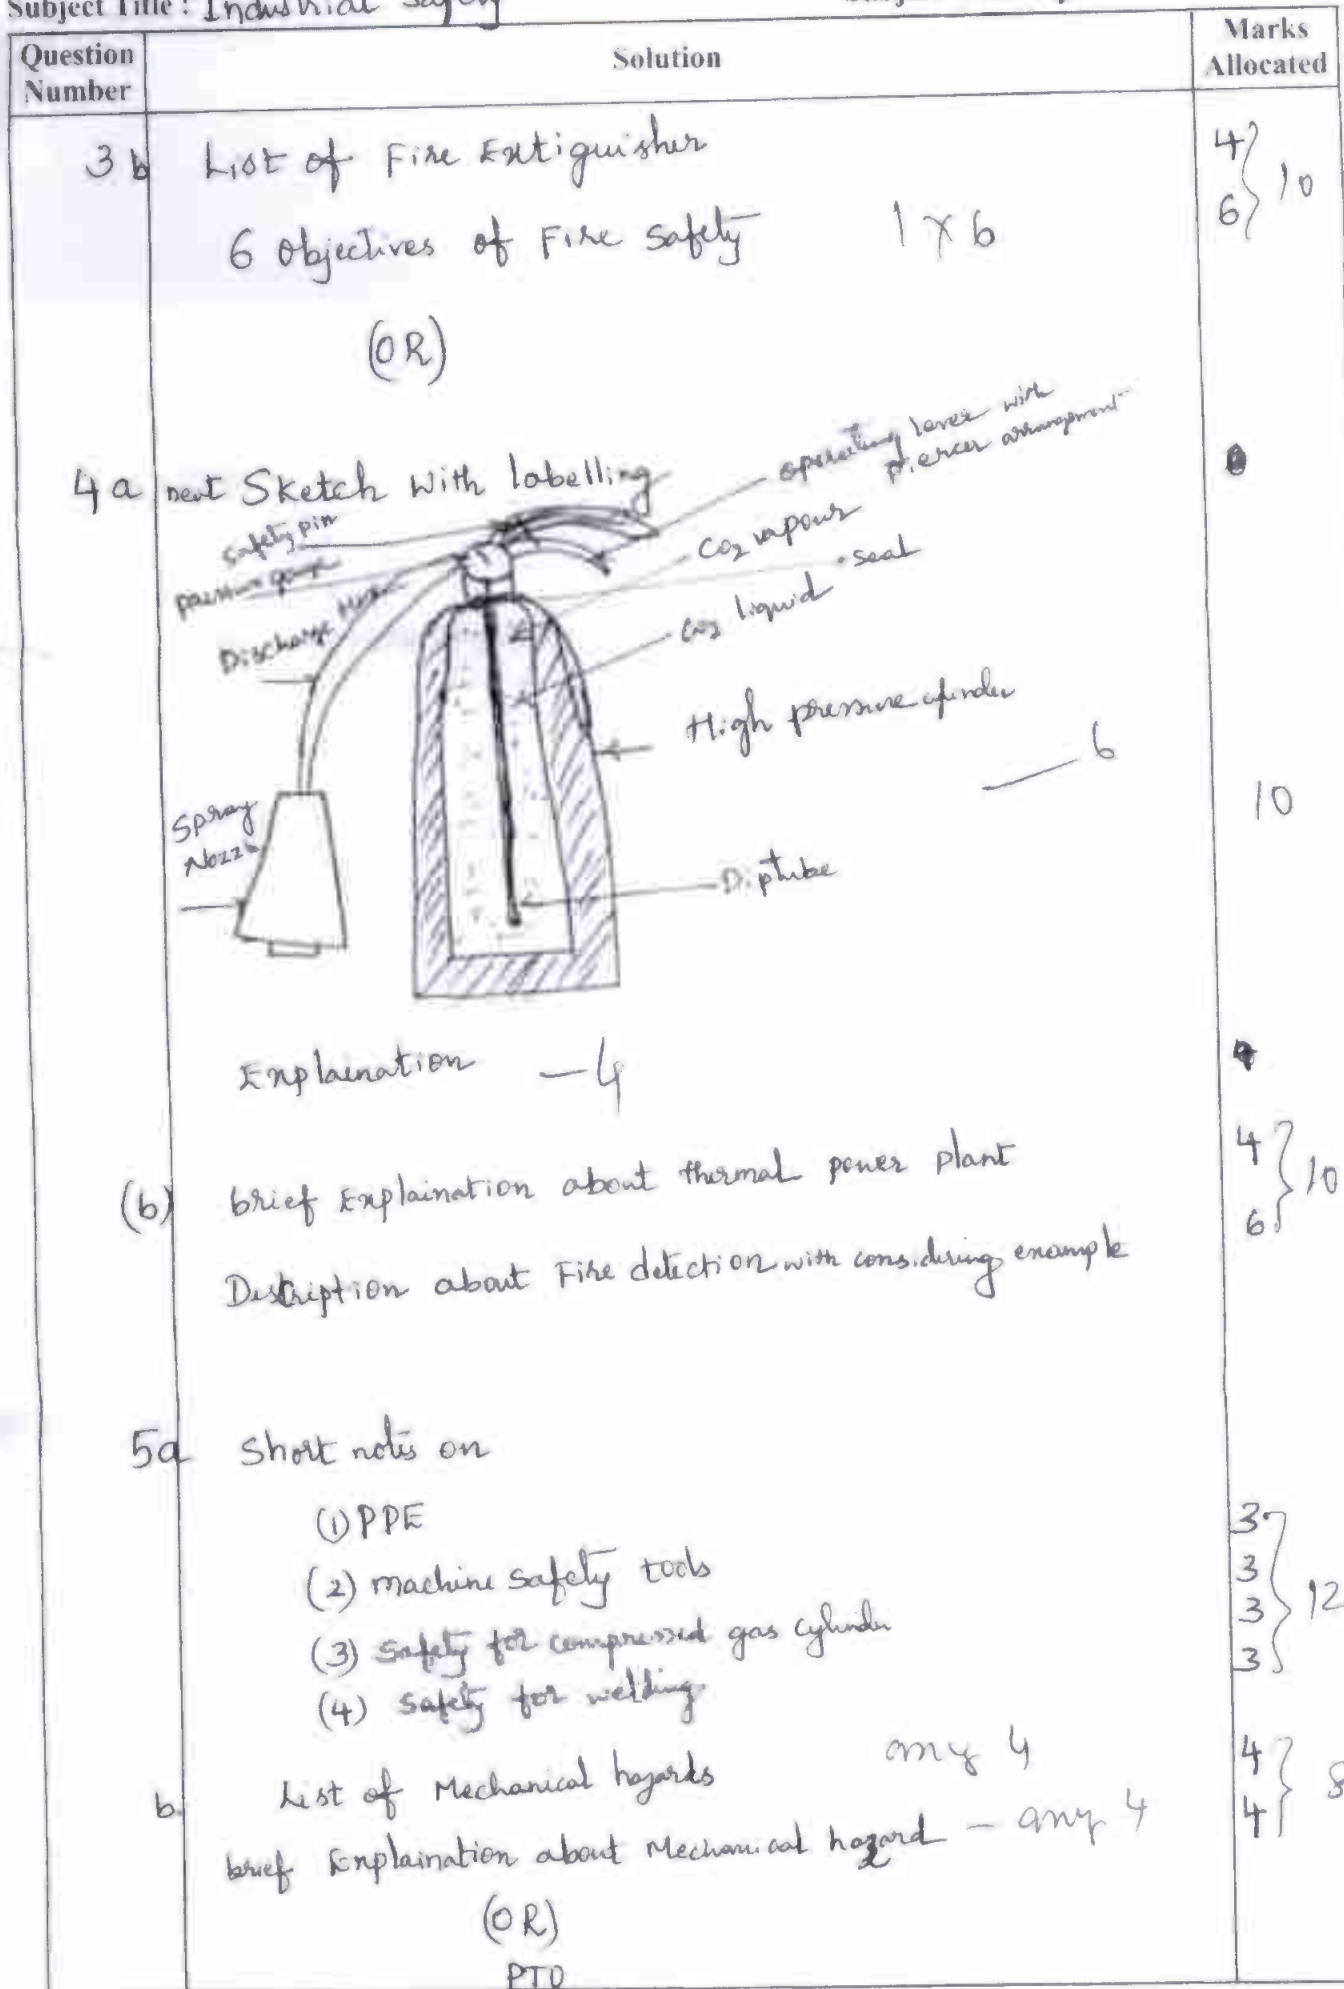 Subject Title : Industrial Safety
Question Number
Solution
Marks Allocated
3 b List of Fire Extiguisher 4
6 Objectives of Fire Safety 1 x 6 6 } 10
(OR)
4 a neat Sketch With labelling
operating lever with
piercer arrangement
safety pin
CO2 vapour
pressure gauge
seal
Discharge Hose
CO2 liquid
High pressure cylinder
6
10
Spray
Nozzle
Diptube
Explaination — 4
4
(b) brief Explaination about thermal power plant 4
Description about Fire detection with considering example 6 } 10
5a Short notes on
(1) PPE 3
(2) Machine Safety tools 3
(3) Safety for compressed gas cylinder 3
(4) Safety for welding. 3 } 12
b. List of Mechanical hazards any 4 4
brief Explaination about Mechanical hazard — any 4 4 } 8
(OR)
PTO